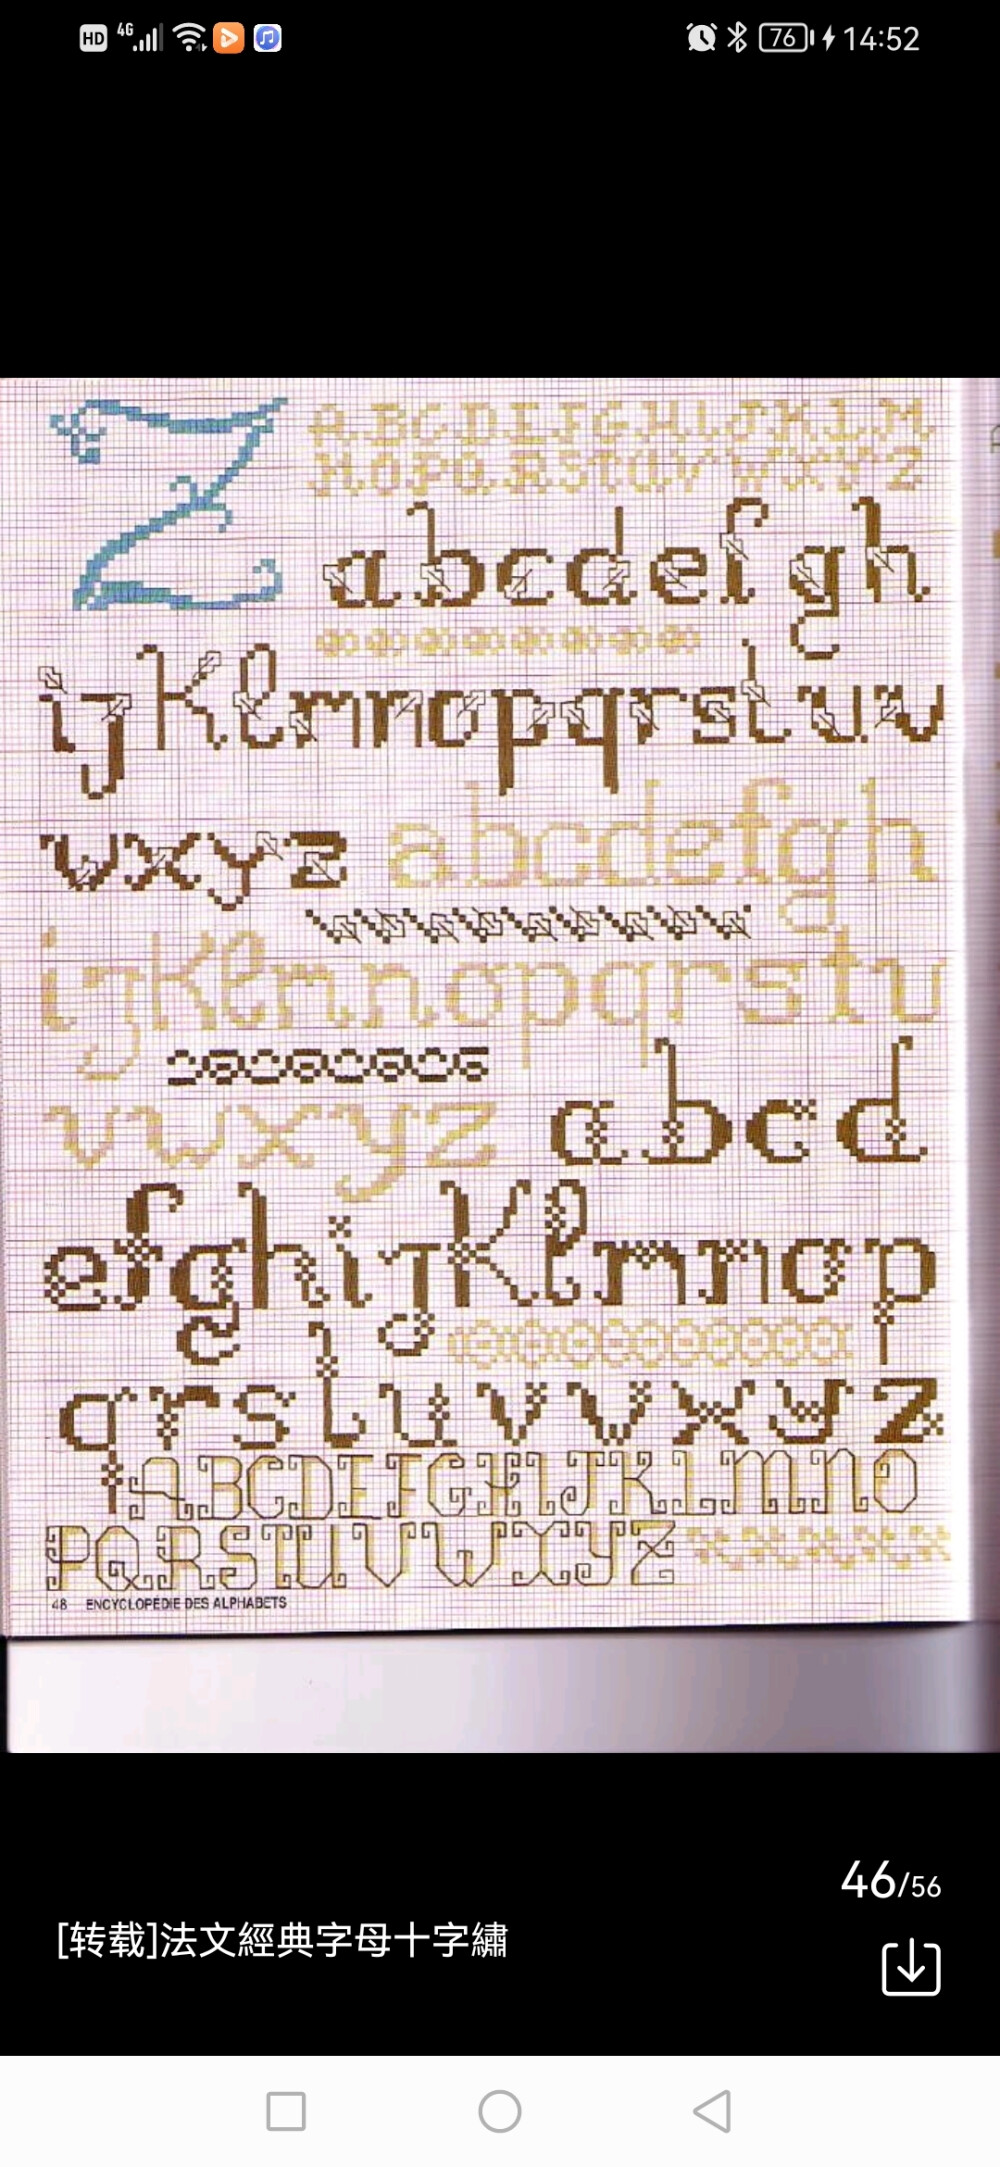 HD 4G 76 14:52
Z
A B C D E F G H I J K L M
N O P Q R S T U V W X Y Z
a b c d e f g h
i j k l m n o p q r s t u v
w x y z
a b c d e f g h
i j k l m n o p q r s t u
v w x y z
a b c d
e f g h i j k l m n o p
q r s t u v v x y z
A B C D E F G H I J K L M N O
P Q R S T U V W X Y Z
48 ENCYCLOPÉDIE DES ALPHABETS
46/56
[转载]法文經典字母十字繡